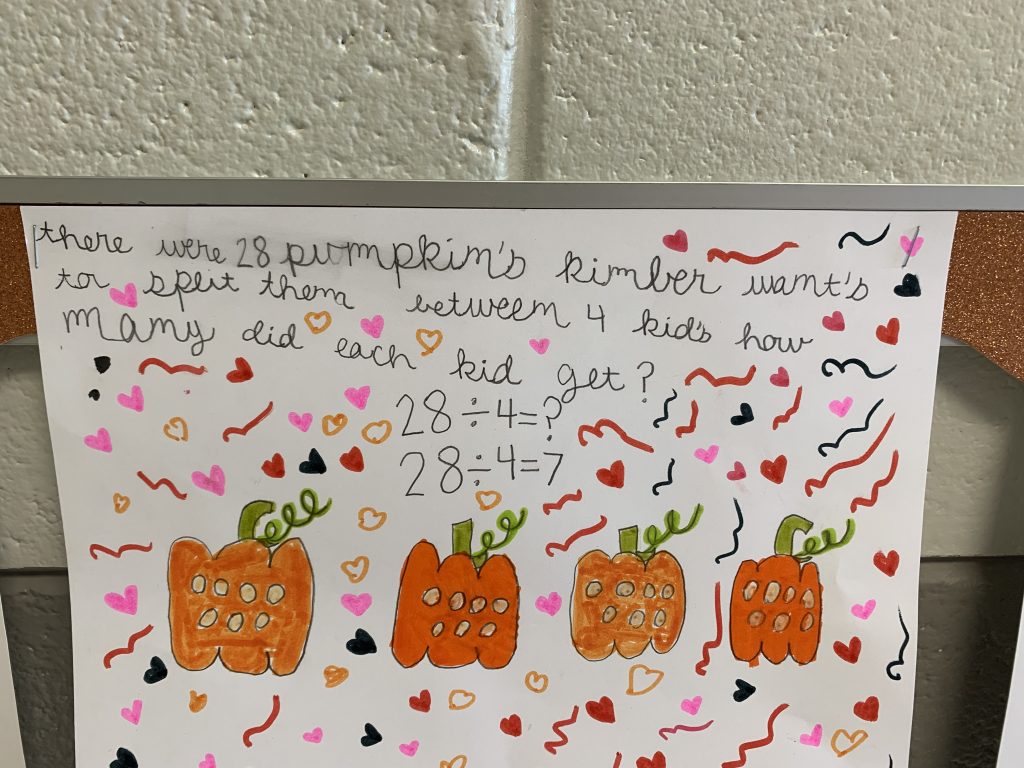 there were 28 pumpkin's kimber want's
to split them between 4 kid's how
many did each kid get?
28÷4=?
28÷4=7